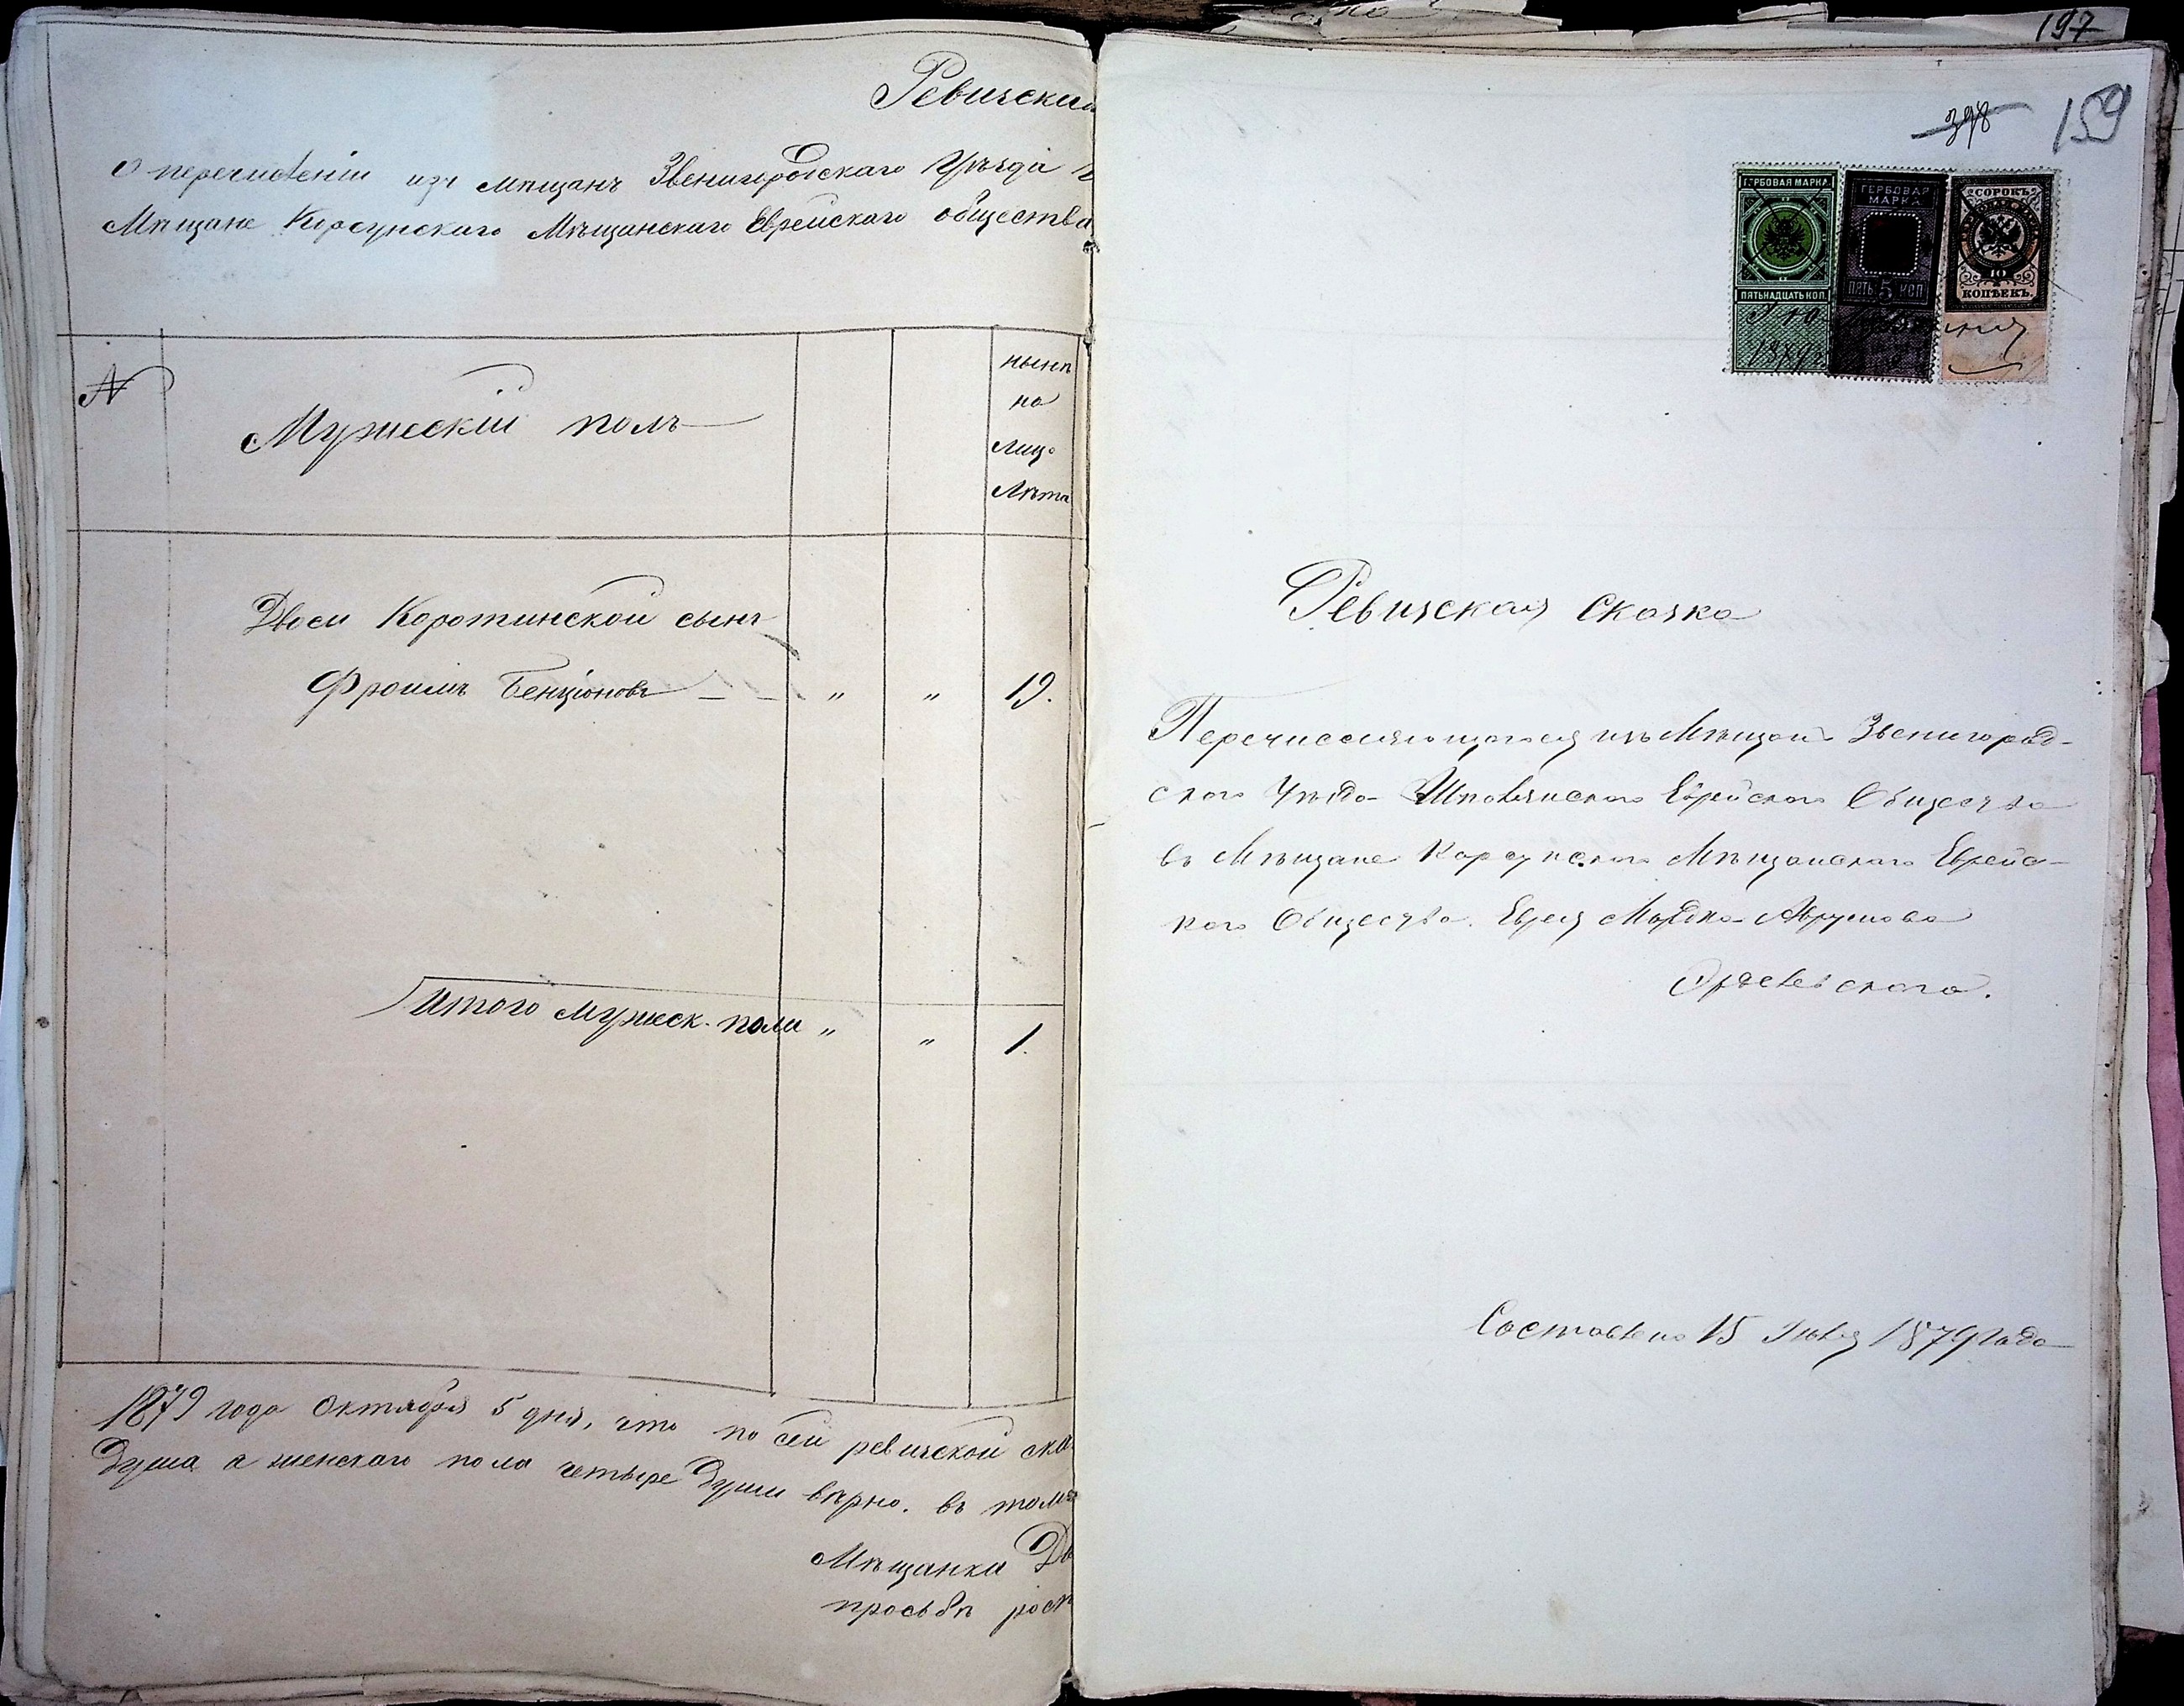 Ревизская
О перечисленіи изъ мѣщанъ Звенигородскаго Уѣзда в
Мѣщане Корсунскаго Мѣщанскаго Еврейскаго общества
№
Мужескій полъ
нынѣ
на
лицо
Лѣта
Двоси Коротинской сынъ
Фроимъ Бенціоновъ — — „ „ 19.
Итого мужеск. пола „ „ 1.
1879 года Октября 5 дня, что по сей ревизской ска
душа а женскаго пола четыре души вѣрно. въ томъ
Мѣщанка Дв
просьбѣ росп
197
398
159
ГЕРБОВАЯ МАРКА
ПЯТЬНАДЦАТЬ КОП.
ГЕРБОВАЯ
МАРКА
ПЯТЬ 5 КОП
СОРОКЪ
КОПѢЕКЪ.
Ревизская Сказка
Перечисляющагося изъ Мѣщан Звенигород-
скаго Уѣзда Шполянскаго Еврейскаго Общества
въ Мѣщане Корсунскаго Мѣщанскаго Еврейс-
каго Общества. Еврея Мордка Аврумова
Составлена 15 Іюля 1879 Года